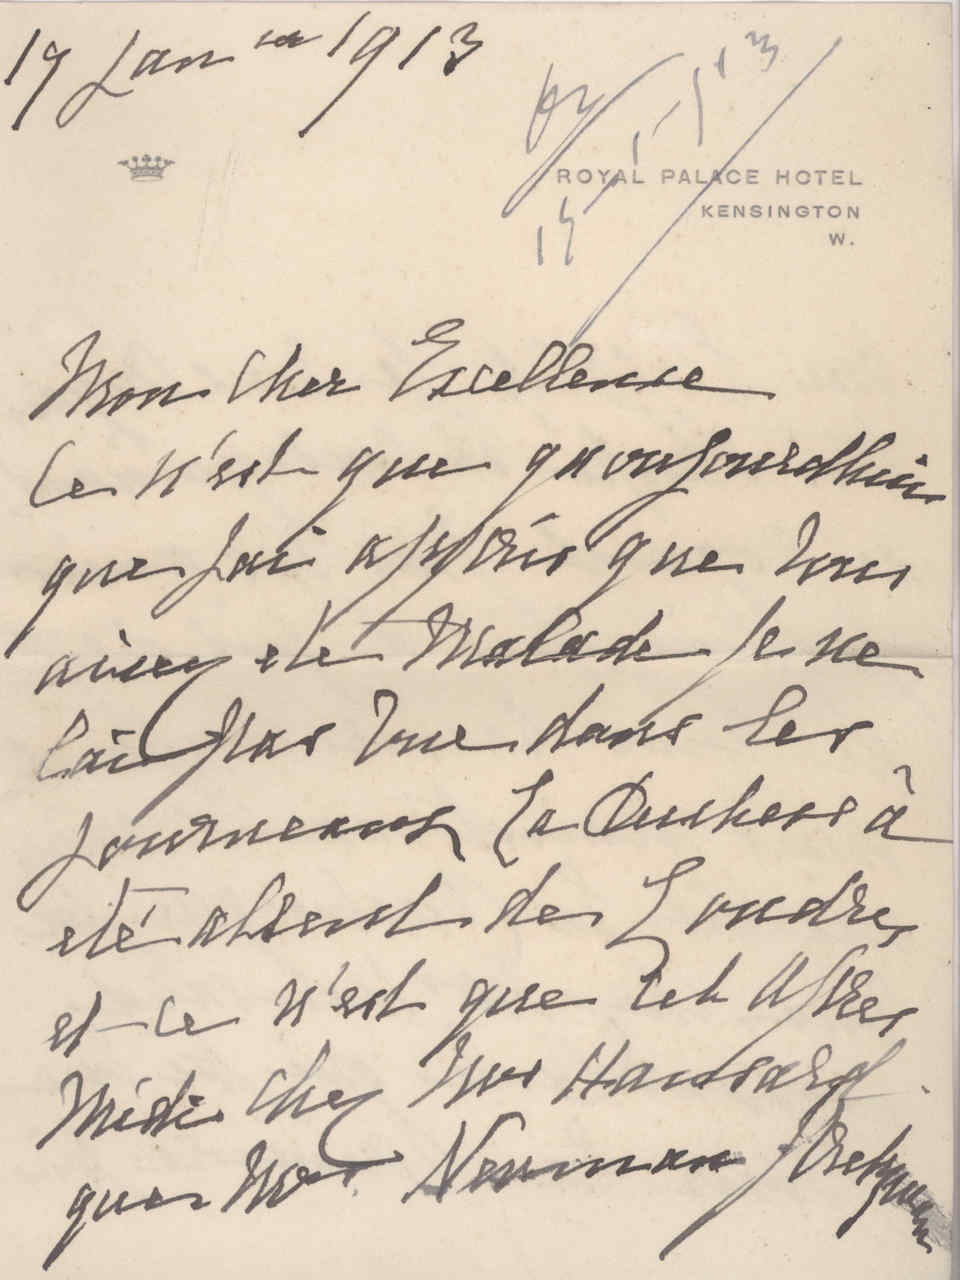 17 Janvier 1913
15-1-13
ROYAL PALACE HOTEL
KENSINGTON
W.
17
Mon Cher Excellence
Ce n'est que qu'aujourdhui
que j'ai appris que vous
aviez eté Malade je ne
l'ai pas vue dans les
journeaux La Duchesse à
eté absent de Londres,
et ce n'est que cet Apres
Midi chez Mrs Hansard
que Mrs Newman